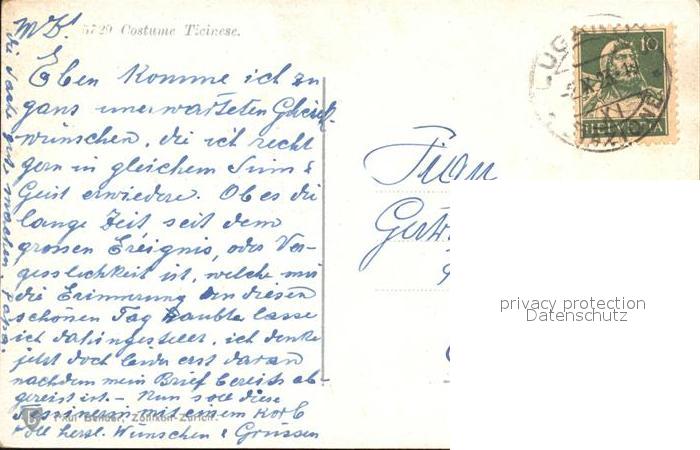 5729 Costume Ticinese.
Eben komme ich zu
ganz unerwarteten Glück-
wünschen, die ich recht
gern in gleichem Sinn &
Geist erwiedere. Ob es die
lange Zeit seit dem
grossen Ereignis, oder Ver-
gesslichkeit ist, welche mir
die Erinnerung an diesen
schönen Tag raubte lasse
ich dahingestellt, ich denke
jetzt doch leider erst daran
nachdem mein Brief bereits ab-
gereist ist. – Nun soll diese
Tessinerin mit einem Korb
voll herzl. Wünschen & Grüssen
gut machen. Papa.
Paul Bender, Zollikon-Zürich.
Frau
10
HELVETIA
LUGANO
privacy protection
Datenschutz